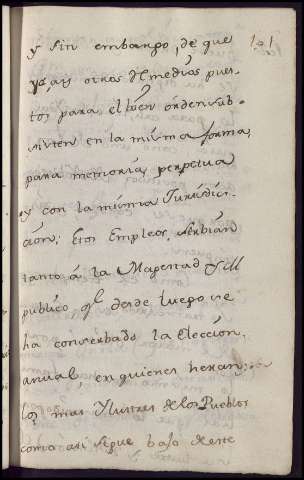 y sin embargo, de que 101
ya, ay otros Remedios pues-
tos para, el buen orden sub-
sisten en la misma forma,
para memoria, perpetua
y con la misma Jurisdic-
cion; Estos Empleos, serbian
tanto á la Magestad y al
publico, q.l desde luego se
ha conserbado la Eleccion.
anual, en quienes heran
los mas Ylustres de los Pueblos
como asi sigue bajo de este